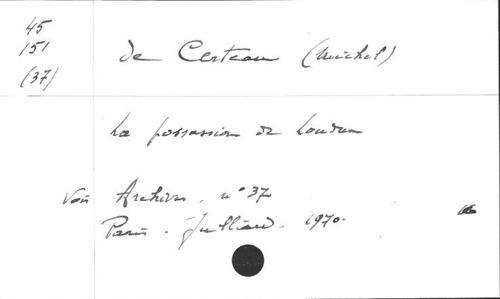 45
151
(37)
de Certeau (Michel)
La possession de Loudun
Voir Archives. n° 37
Paris. Julliard. 1970.